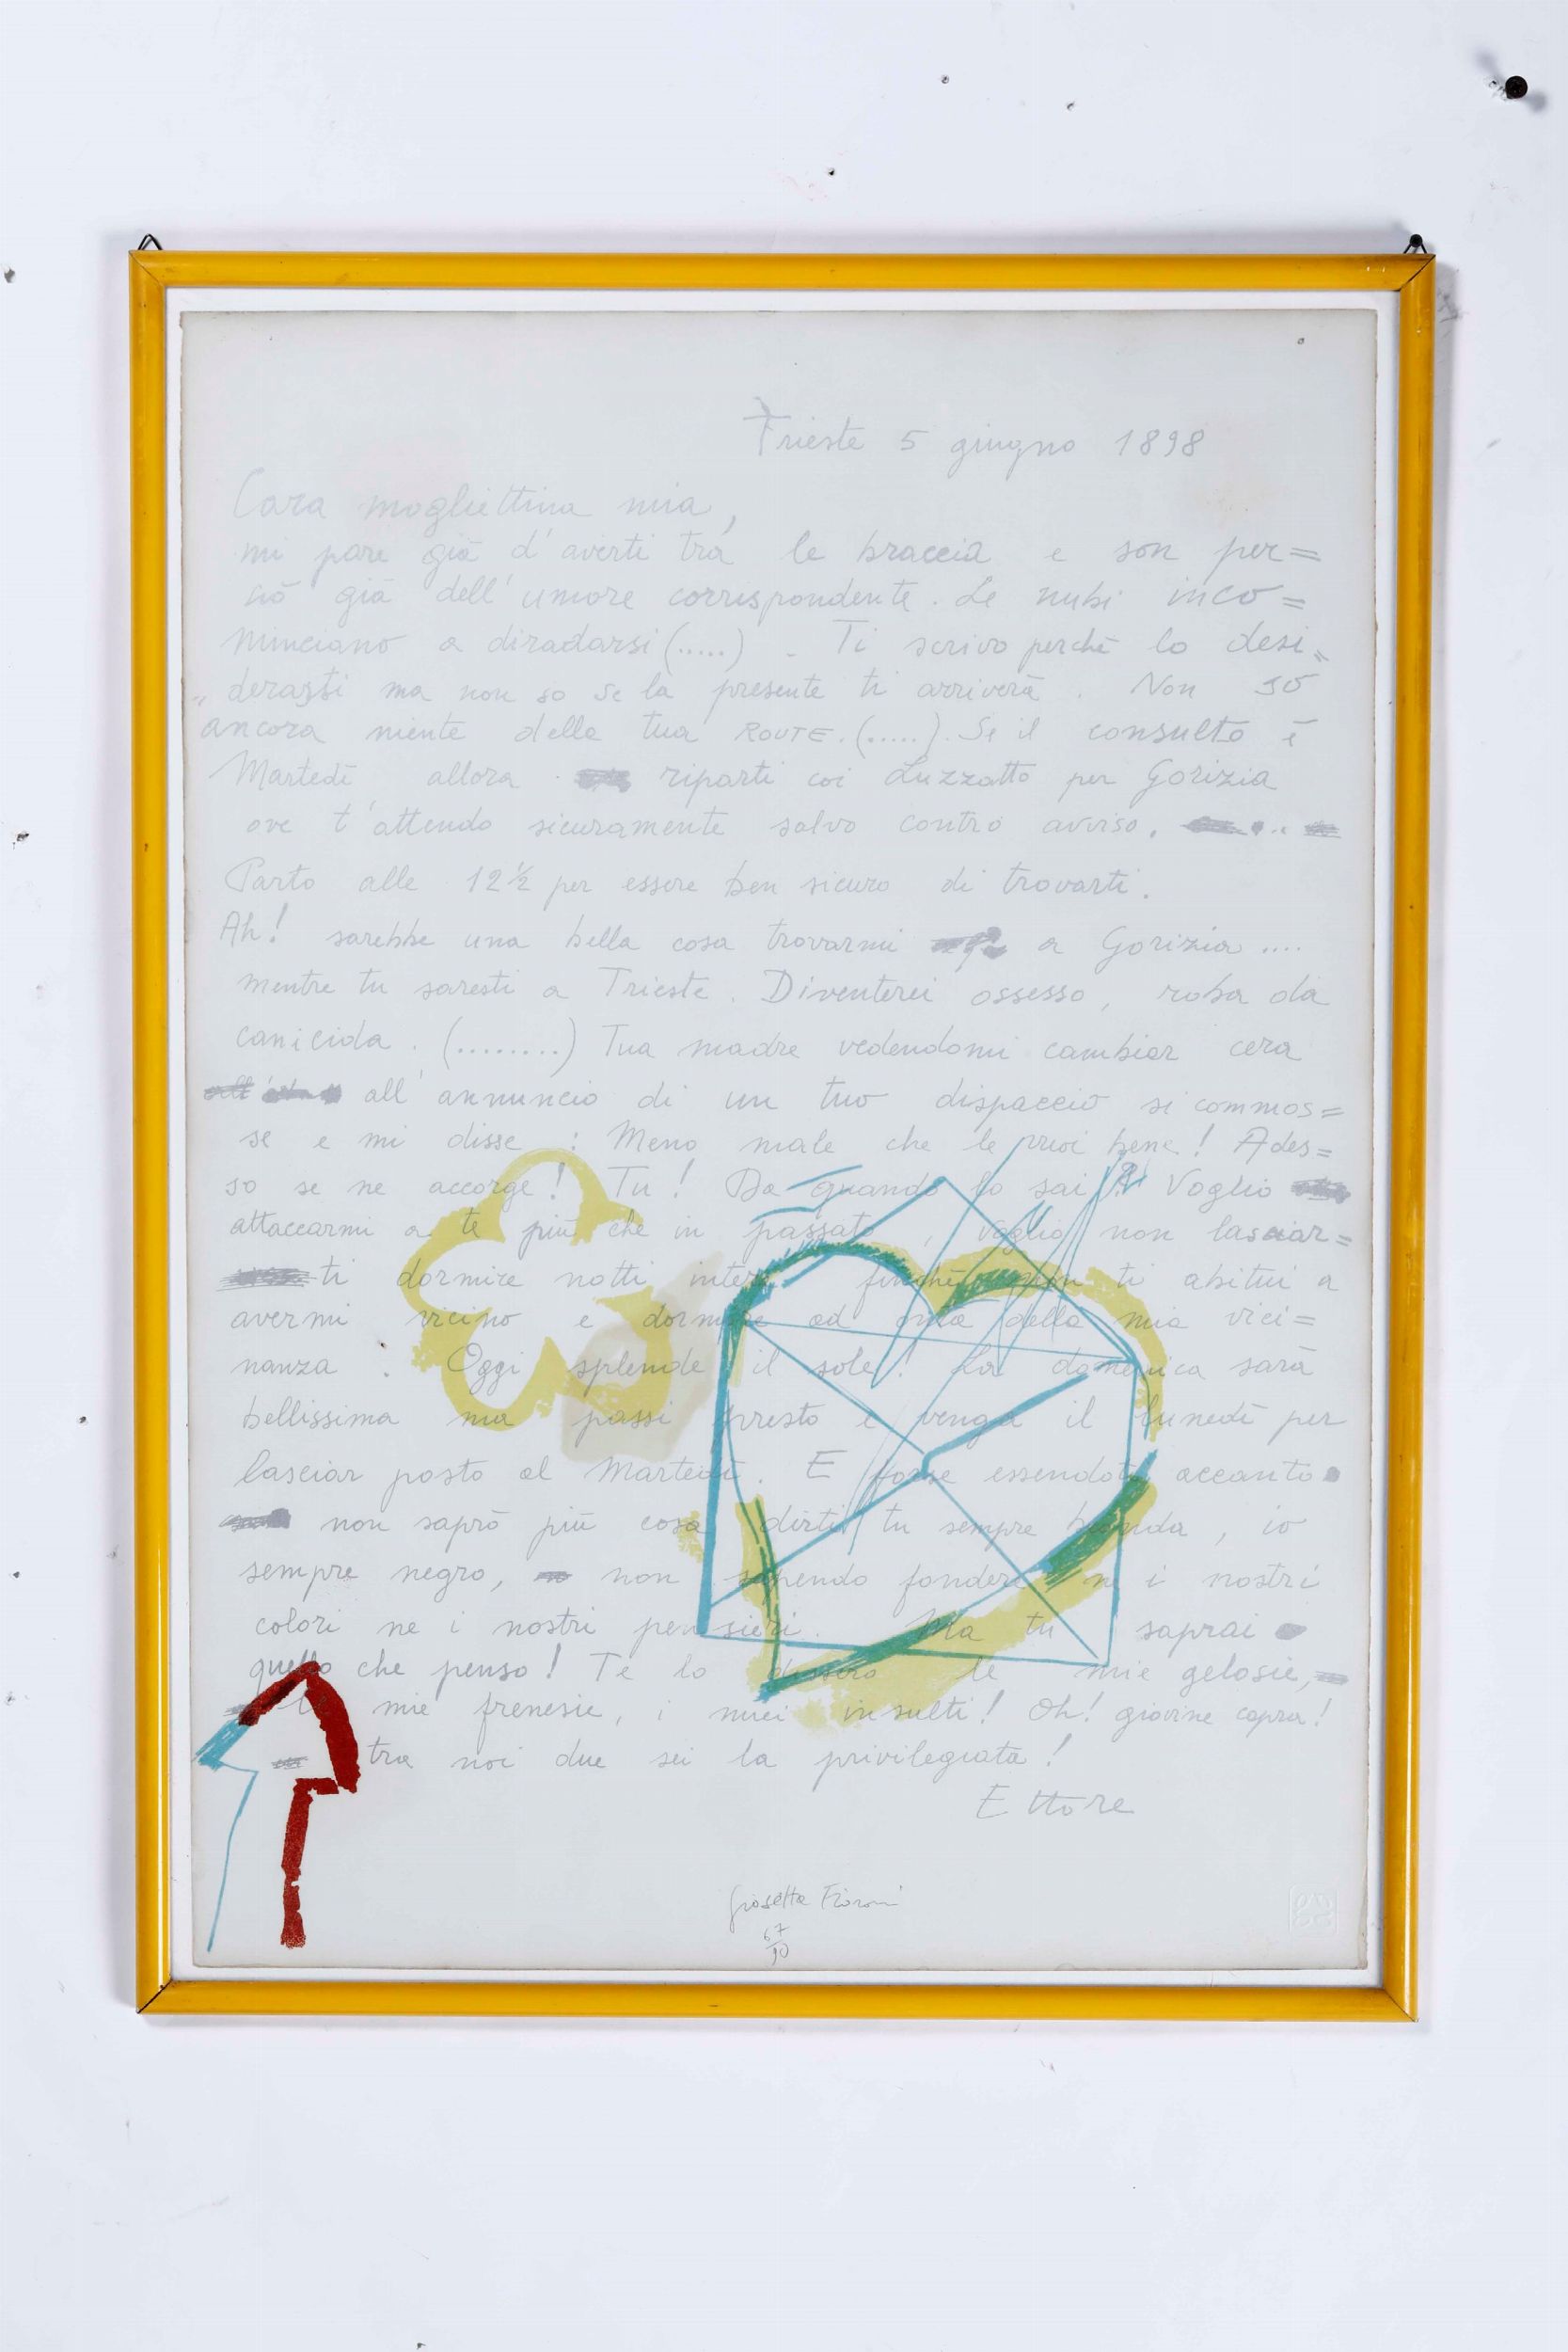 Trieste 5 giugno 1898
Cara mogliettina mia,
mi pare già d'averti tra le braccia e son per=
ciò già dell'umore corrispondente. Le nubi inco=
minciano a diradarsi (.....) - Ti scrivo perchè lo desi=
"derasti ma non so se la presente ti arriverà. Non so
ancora niente della tua ROUTE. (.....). Se il consulto è
Martedì allora riparti coi Luzzatto per Gorizia
ove t'attendo sicuramente salvo contro avviso.
Parto alle 12½ per essere ben sicuro di trovarti.
Ah! sarebbe una bella cosa trovarmi a Gorizia ....
mentre tu saresti a Trieste. Diventerei ossesso, roba da
canicida. (........) Tua madre vedendomi cambiar cera
all'annuncio di un tuo dispaccio si commos=
se e mi disse: Meno male che le vuoi bene! Ades=
so se ne accorge! Tu! Da quando lo sai? Voglio
attaccarmi a te più che in passato, voglio non lasciar=
ti dormire notti intere finchè non ti abitui a
avermi vicino e dormire ad onta della mia vici=
nanza. Oggi splende il sole! La domenica sarà
bellissima ma passi presto e venga il lunedì per
lasciar posto al Martedì. E forse essendoti accanto
non saprò più cosa dirti tu sempre bionda, io
sempre negro, non sapendo fondere ne i nostri
colori ne i nostri pensieri. Ma tu saprai
quello che penso! Te lo dissero le mie gelosie,
le mie frenesie, i miei insulti! Oh! giovine capra!
tra noi due sei la privilegiata!
Ettore
Giosetta Fioroni
67
90